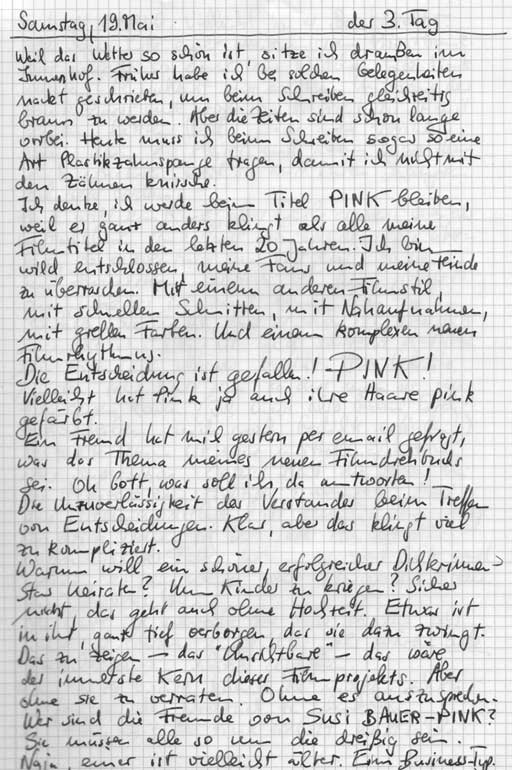 Samstag, 19. Mai der 3. Tag
Weil das Wetter so schön ist, sitze ich draußen im
Innenhof. Früher habe ich bei solchen Gelegenheiten
nackt geschrieben, um beim Schreiben gleichzeitig
braun zu werden. Aber die Zeiten sind schon lange
vorbei. Heute muss ich beim Schreiben sogar so eine
Art Plastikzahnspange tragen, damit ich nicht mit
den Zähnen knirsche.
Ich denke, ich werde beim Titel PINK bleiben,
weil es ganz anders klingt als alle meine
Filmtitel in den letzten 20 Jahren. Ich bin
wild entschlossen, meine Fans und meine Feinde
zu überraschen. Mit einem anderen Filmstil,
mit schnellen Schnitten, mit Nahaufnahmen,
mit grellen Farben. Und einem komplexen neuen
Filmrhythmus.
Die Entscheidung ist gefallen! PINK!
Vielleicht hat Pink ja auch ihre Haare pink
gefärbt.
Ein Freund hat mich gestern per email gefragt,
was das Thema meines neuen Filmdrehbuchs
sei. Oh Gott, was soll ich da antworten!
Die Unzuverlässigkeit des Verstandes beim Treffen
von Entscheidungen. Klar, aber das klingt viel
zu kompliziert.
Warum will ein schöner, erfolgreicher Dichterinnen-
Star heiraten? Um Kinder zu kriegen? Sicher
nicht, das geht auch ohne Hochzeit. Etwas ist
in ihr, ganz tief verborgen, das sie dazu zwingt.
Das zu zeigen – das "Unsichtbare" – das wäre
der innerste Kern dieses Filmprojekts. Aber
ohne sie zu verraten. Ohne es auszusprechen.
Wer sind die Freunde von SUSI BAUER-PINK?
Sie müssen alle so um die dreißig sein.
Naja, einer ist vielleicht älter. Ein Business-Typ.